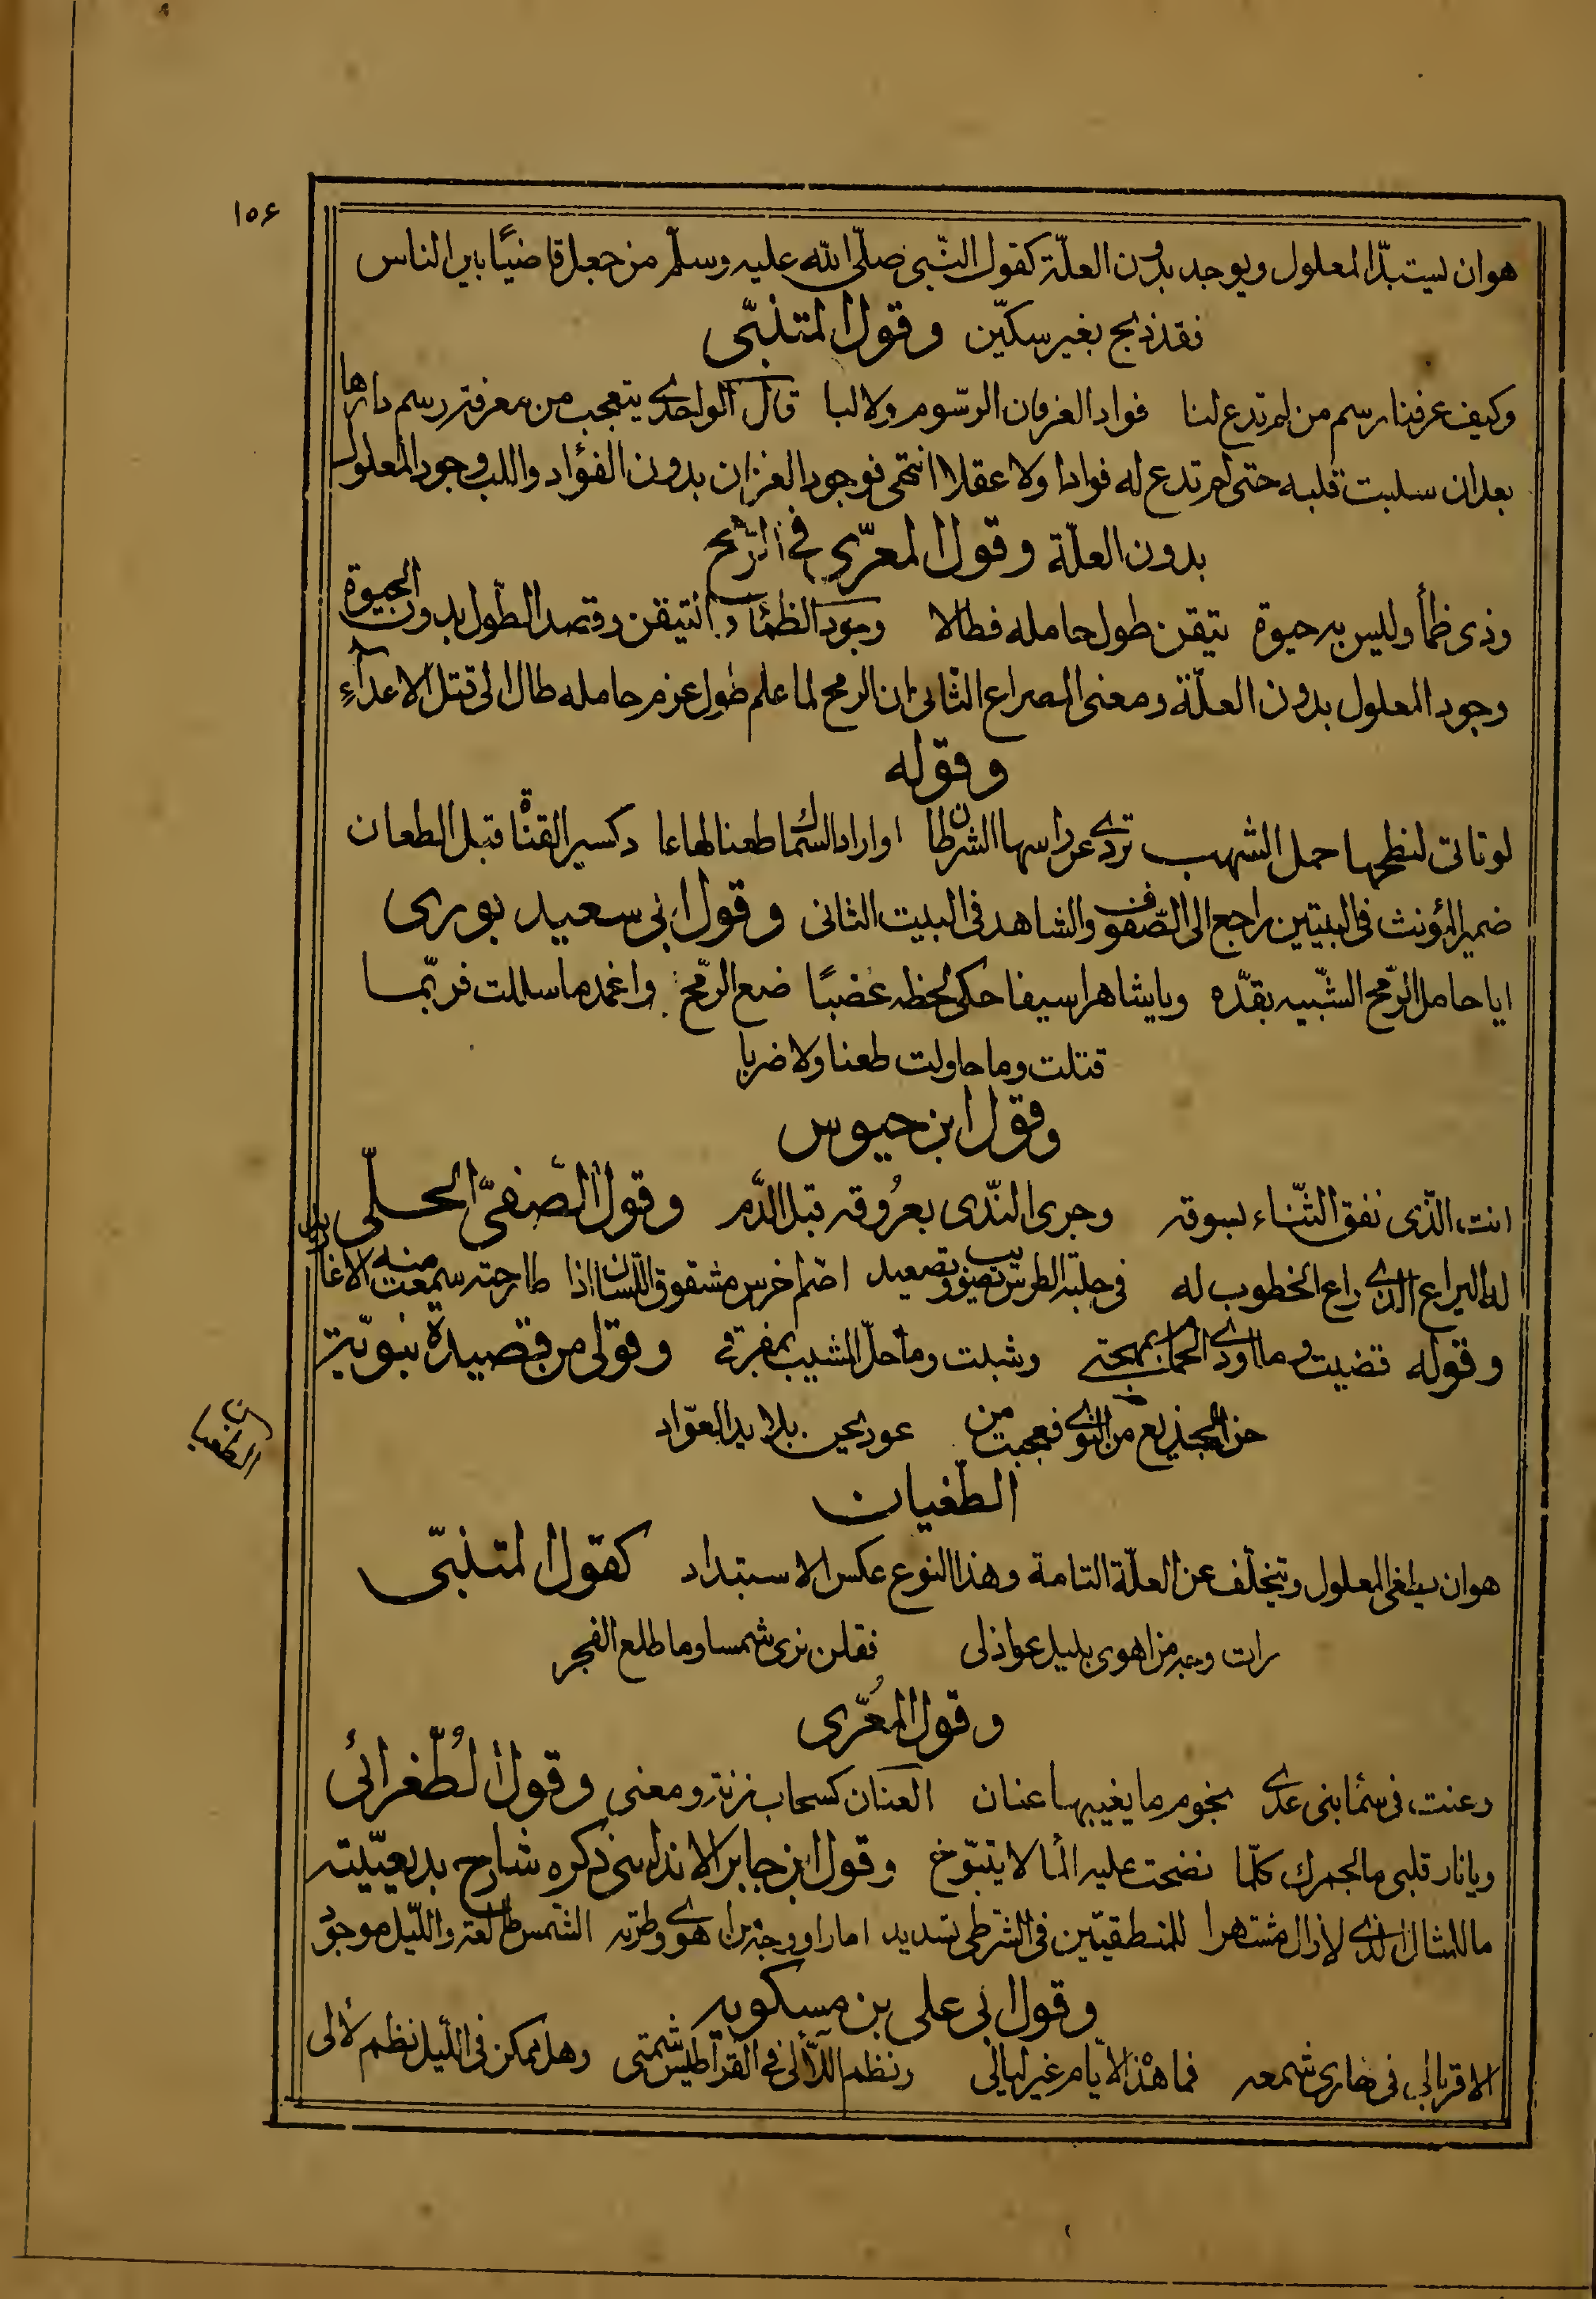 ١٥٦
هو ان يستبدّ المعلول ويوجد بدون العلّة كقول النّبی صلّی الله عليه وسلّم من جعل قاضيًا بين الناس
فقد ذبح بغير سكّين وقول المتنبّی
وكيف عرفنا رسم من لم تدع لنا فواد العرفان الرّسوم ولا لبا قال الواحدی يتعجب من معرفته رسم دارها
بعد ان سلبت قلبه حتی لم تدع له فوادا ولا عقلا انتهی فوجود العرفان بدون الفؤاد واللب وجود المعلول
بدون العلّة وقول المعرّی فی الرّمح
وذی ظمأ وليس به حيوة تيقن طول حامله فطالا وجود الظمأ و التيقن وقصد الطّول بدون الحيوة
وجود المعلول بدون العلّة ومعنی المصراع الثّانی ان الرمح لما علم طول عزم حامله طال الی قتل الاعداء
وقوله
لو تاتی لنطحها حمل الشهب تردی عن راسها الشرطان او اراد السّماك طعنا لها عا د كسير القناة قبل الطعان
ضمير المؤنث فی البيتين راجع الی الصّفوف والشاهد فی البيت الثانی وقول ابی سعيد بوری
ايا حامل الرّمح الشّبيه بقدّه ويا شاهرا سيفا حكی لحظه عضبًا ضع الرّمح واغمد ما سللت فربّما
قتلت وما حاولت طعنا ولا ضربا
وقول ابن حيوس
انت الّذی نفق الثّناء بسوقه وجری النّدی بعُروقه قبل الدّم وقول الصّفیّ الحلّی
له اليراع الذی راع الخطوب له فی حلبة الطرس تصويب وتصعيد اصم اخرس مشقوق اللّسان اذا طارحته سمعت منه الاغاريد
وقوله قضيت وما اودی الحمام بمهجتی وشبت وما حلّ المشيب بمفرقی وقولی من قصيدة نبويّة
حن الجذيع من النوی فعجبت من عود يحن بلا يد العوّاد
الطغيان
الطّغيان
هو ان يطغی المعلول ويتخلّف عن العلّة التامة وهذا النوع عكس الاستبداد كقول المتنبّی
رات وجه من اهوی بليل عواذلی فقلن نری شمسا وما طلع الفجر
وقول المعُرّی
وعنت فی سما بنی عدی نجوم ما يغيبها عنان العنان كسحاب زنة ومعنی وقول الطُّغرائی
ويا نار قلبی ما لجمرك كلّما نضحت عليه الما لا يتبوّخ وقول ابن جابر الاندلسی ذكره شارح بديعيّته
ما للمثال الذی لا زال مشتهرا للمنطقيّين فی الشّرطی تسديد اما راوا وجه من اهوی وطرته الشّمس طالعة واللّيل موجود
وقول ابی علی بن مسكويه
الا قربا لی فی نهاری شمعه فما هذه الايّام غير ليالی ونظم اللّآلی فی القراطيس شمتی وهل يمكن فی اللّيل نظم لآلی